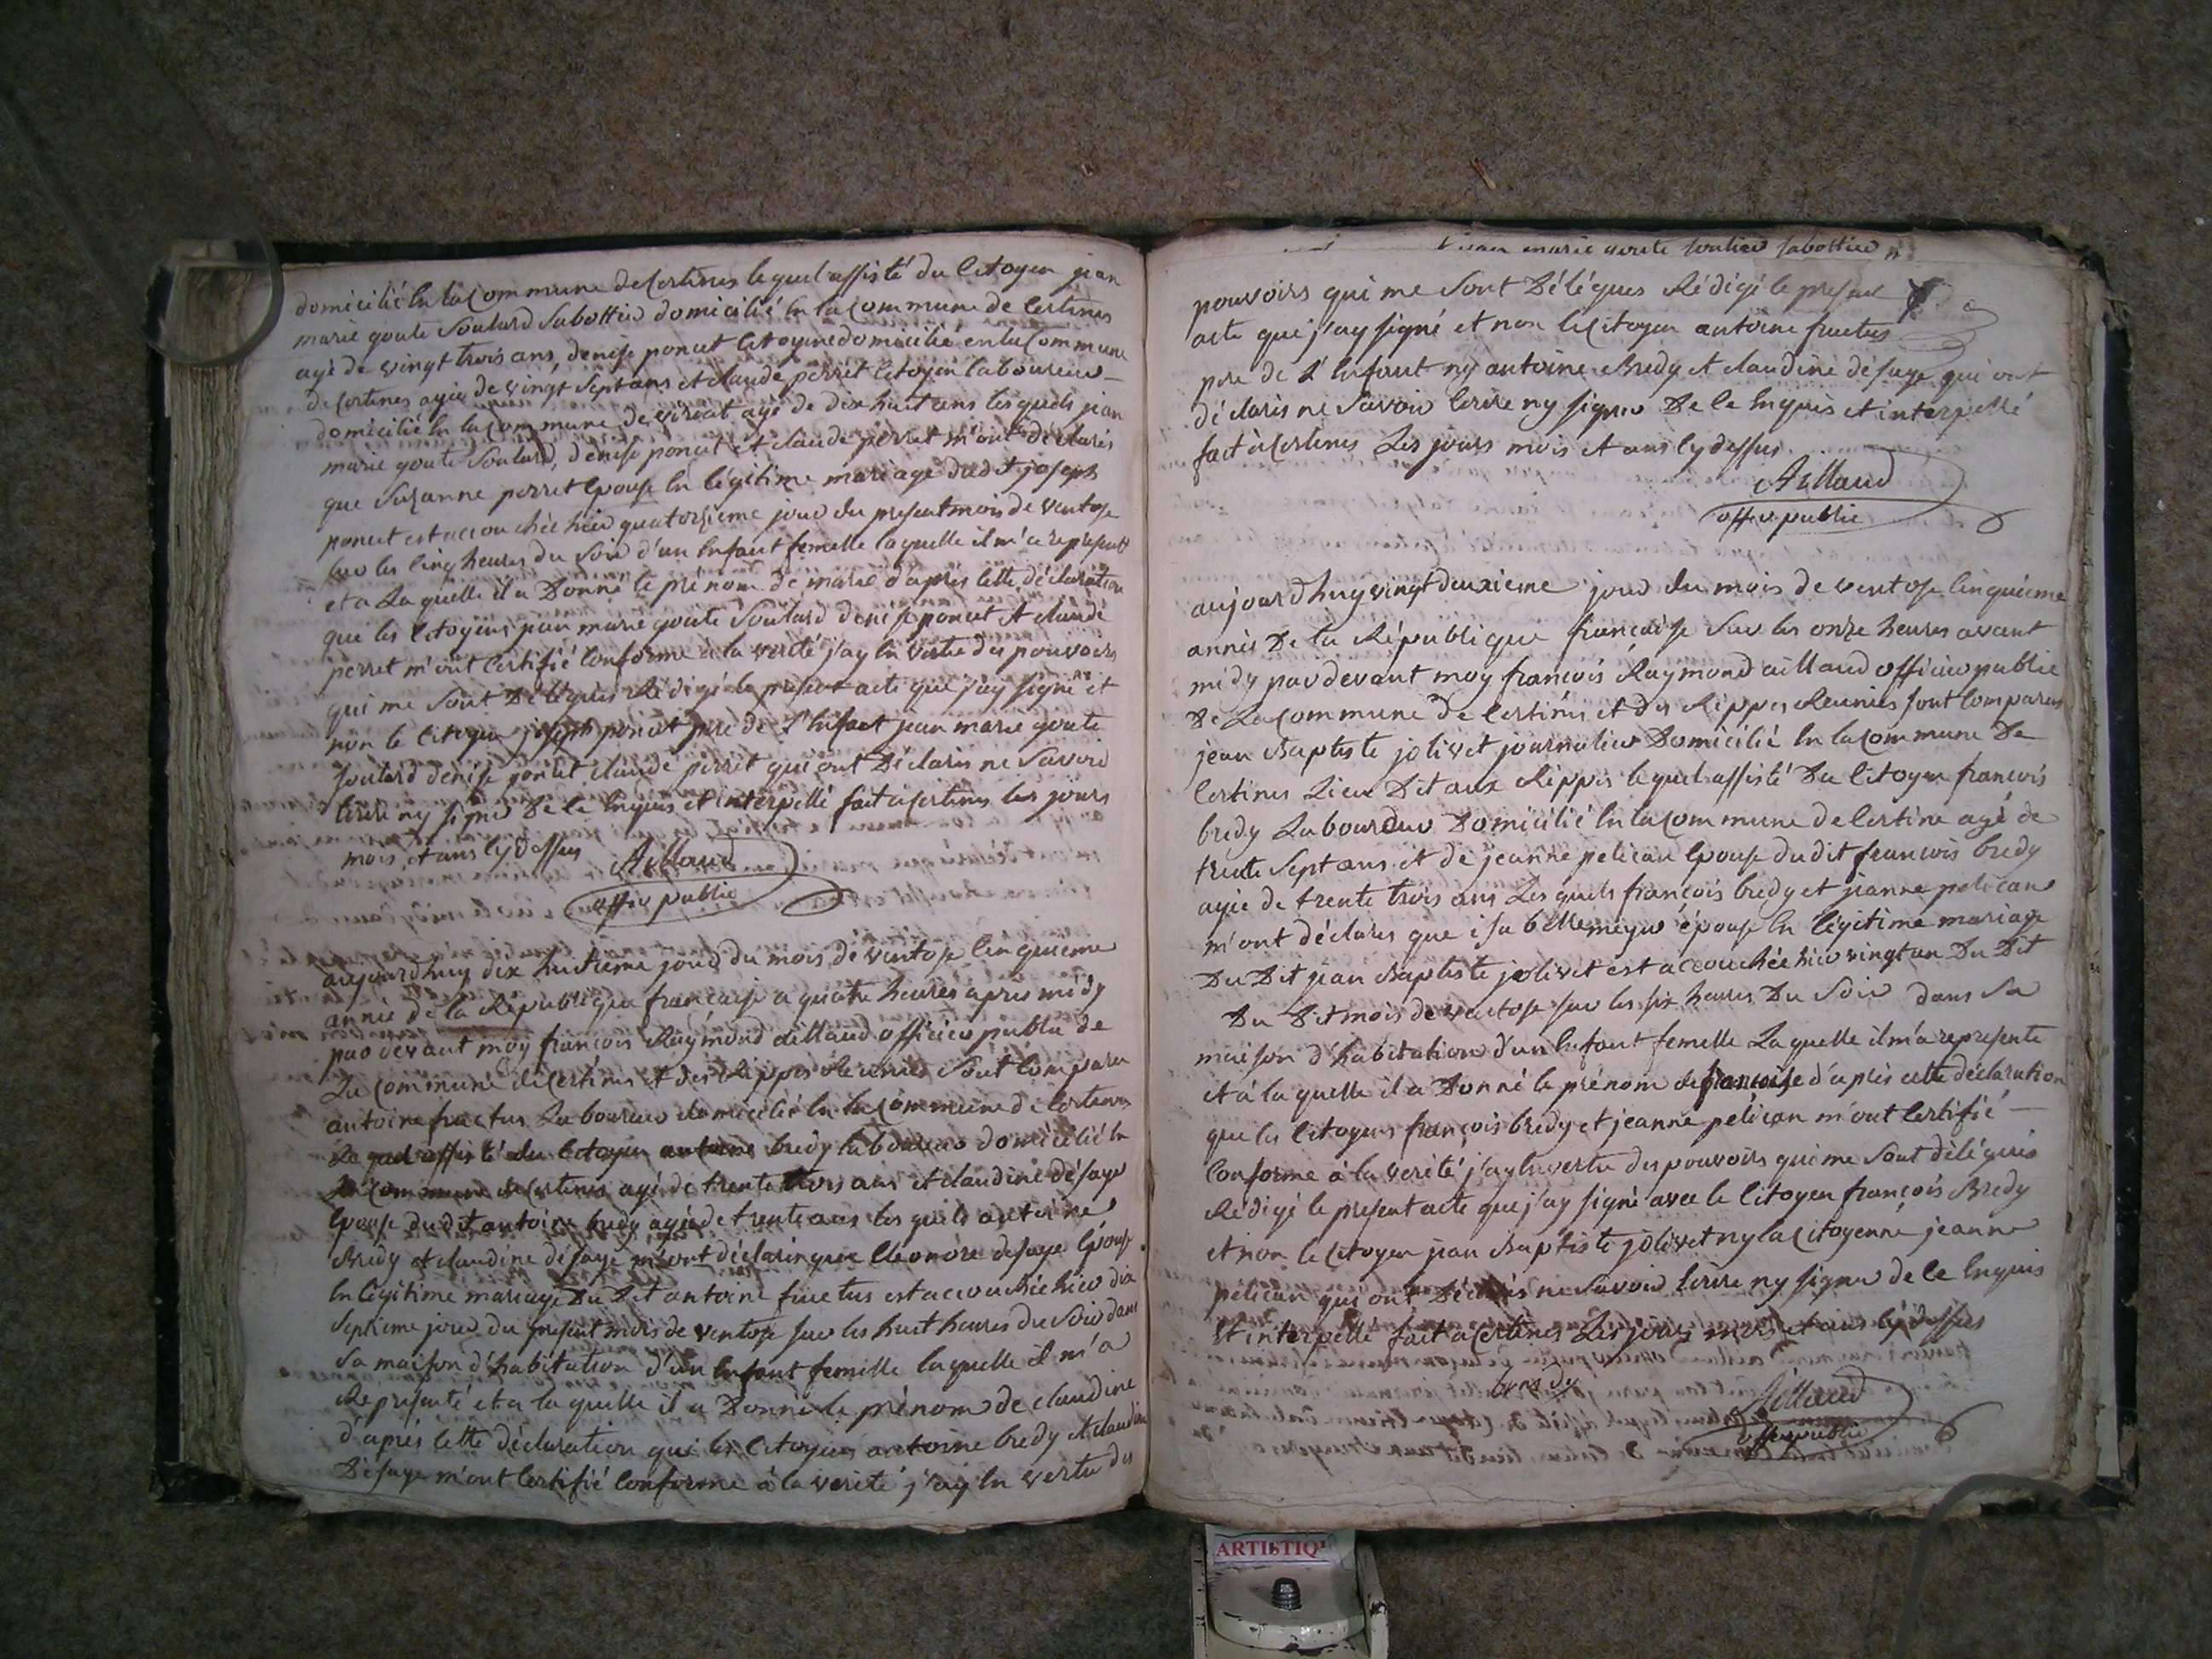 domicilié En la Commune de Certines lequel assisté du Citoyen jean
marie goute Soulard Sabottier domicilié En la Commune de Certines
agé de vingt trois ans, denise poncet Citoyene domicilié en la Commune
de Certines agée de vingt Sept ans et claude perret Citoyen laboureur
domicilié En la Commune de agé de dix huit ans lesquels jean
marie goute Soulard, denise poncet et claude perret m'ont déclarés
que Suzanne perret Epouse En légitime mariage dudit joseph
poncet est accouchée hier quatorzieme jour du present mois de ventose
sur les Cinq heures du Soir d'un Enfant femelle laquelle il m'a represente
et a Laquelle il a Donné le prénom de marie d'après Cette déclaration
que les Citoyens jean marie goute Soulard denise poncet et claude
perret m'ont Certifié Conforme à la verité j'ay En Vertu des pouvoirs
qui me Sont Délégués Rédigé le present acte que j'ay signé et
non le Citoyen joseph poncet pere de l'Enfant jean marie goute
Soulard denise poncet claude perret qui ont Déclarés ne Savoir
Ecrire ny signer De Ce Enquis et interpellé fait a Certines les jours
mois et ans Cy Dessus Aillaud
offier public
aujourd'huy dix huitieme jour du mois de ventose Cinquieme
année de la République francaise a quatre heures apres midy
par devant moy francois Raymond aillaud officier public de
La Commune de Certines et des Rippes Réunies Sont Comparu
antoine fructus Laboureur domicilié En la Commune de Certines
Lequel assisté du Citoyen antoine bredy laboureur domicilié En
La Commune de Certines agé de trente trois ans et claudine désaye
Epouse dudit antoine bredy agée de trente ans lesquels antoine
Bredy et claudine désaye m'ont déclarés que Eleonore desaye Epouse
En légitime mariage Du Dit antoine fructus est accouchée hier dix
Septieme jour du present mois de ventose sur les huit heures du Soir dans
Sa maison d'habitation d'un Enfant femelle laquelle il m'a
Represente et a laquelle il a Donné le prénom de claudine
d'après Cette déclaration que les Citoyens antoine bredy et claudine
Désaye m'ont Certifié Conforme à la verité j'ay En vertu des
jean marie goute soulier sabottier
pouvoirs qui me Sont Délégues Rédigé le present
acte que j'ay signé et non le Citoyen antoine fructus
pere de l'Enfant ny antoine Bredy et claudine désaye qui ont
déclarés ne Savoir Ecrire ny signer De Ce Enquis et interpellé
fait à Certines Les jours mois et ans Cy dessus
Aillaud
offier public
aujourd'huy vingt deuxieme jour du mois de ventose Cinquieme
année De la République francaise Sur les onze heures avant
midy par devant moy francois Raymond aillaud officier public
De La Commune de Certines et des Rippes Reunies sont Comparus
jean Baptiste jolivet journalier Domicilié En la Commune De
Certines Lieu Dit aux Rippes lequel assisté Du Citoyen francois
bredy Laboureur Domicilié En la Commune de Certine agé de
trente Sept ans et de jeanne pelican Epouse dudit francois bredy
agée de trente trois ans Lesquels francois bredy et jeanne pelican
m'ont déclarés que isabelle épouse En légitime mariage
Du Dit jean Baptiste jolivet est accouchée hier vingt un Du Dit
Du Dit mois de ventose sur les six heures Du Soir dans Sa
maison d'habitation d'un Enfant femelle Laquelle il m'a represente
et à laquelle il a Donné le prénom de francoise d'après cette déclaration
que les Citoyens francois bredy et jeanne pelican m'ont Certifié
Conforme à la verité j'ay En vertu des pouvoirs qui me Sont délégués
Rédigé le present acte que j'ay signé avec le Citoyen francois Bredy
et non le Citoyen jean Baptiste jolivet ny la Citoyenne jeanne
pelican qui ont Déclarés ne Savoir Ecrire ny signer de Ce Enquis
Et interpellé fait a Certines Les jours mois et ans Cy dessus
bredy Aillaud
offier public
ARTISTIQ